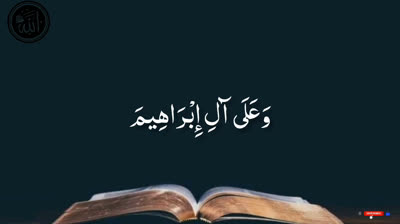 وَعَلَى آلِ إِبْرَاهِيمَ